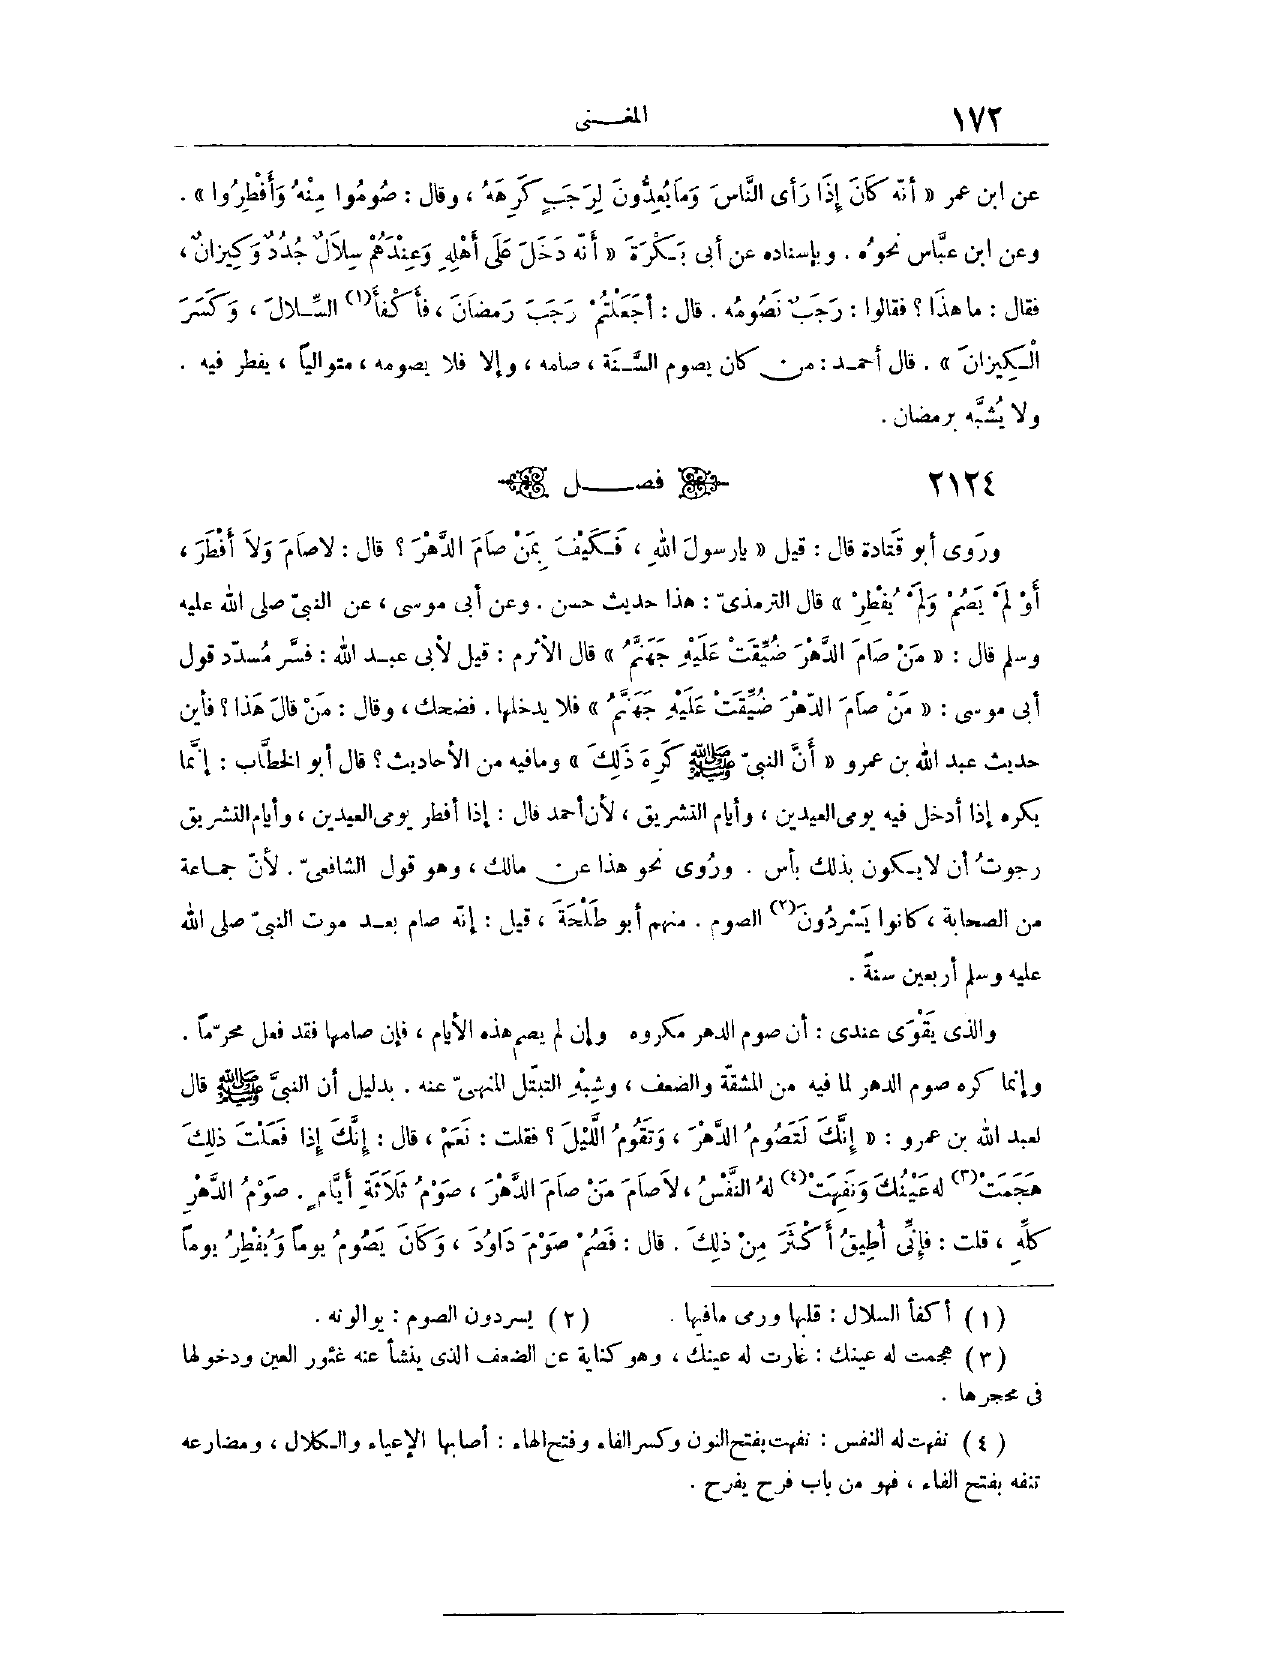 ١٧٢ المغـــنى
عن ابن عمر « أنّه كَانَ إِذَا رَأى النَّاسَ وَمَا يُعِدُّونَ لِرَجَبٍ كَرِهَهُ ، وقال : صُومُوا مِنْهُ وَأَفْطِرُوا » .
وعن ابن عبَّاس نحوُه . وبإسناده عن أبى بَـكْرَةَ « أَنّه دَخَلَ عَلَى أَهْلِهِ وَعِنْدَهُمْ سِلاَلٌ جُدُدٌ وَكِيزانٌ ،
فقال : ما هذَا ؟ فقالوا : رَجَبٌ نَصُومُه . قال : أجَعَلْتُمْ رَجَبَ رَمضَانَ ، فأَكْفأَ(١) السِّـلالَ ، وَكَسَرَ
الْـكِيزانَ » . قال أحمـد : من كان يصوم السَّـنَة ، صامه ، وإلا فلا يصومه ، متوالياً ، يفطر فيه .
ولا يُشبَّه برمضان .
٢١٢٤ فصـــل
ورَوى أبو قَتادة قال : قيل « يارسولَ اللهِ ، فَـكَيْفَ بِمَنْ صَامَ الدَّهْرَ ؟ قال : لاصاَمَ وَلاَ أَفْطَرَ ،
أَوْ لَمْ يَصُمْ وَلَمْ يُفْطِرْ » قال الترمذىّ : هذا حديث حسن . وعن أبى موسى ، عن النبىّ صلى الله عليه
وسلم قال : « مَنْ صَامَ الدَّهْرَ ضُيِّقَتْ عَلَيْهِ جَهَنَّمُ » قال الأثرم : قيل لأبى عبـد الله : فسَّر مُسدّد قول
أبى موسى : « مَنْ صاَمَ الدّهْرَ ضُيِّقَتْ عَلَيْهِ جَهَنَّمُ » فلا يدخلها . فضحك ، وقال : مَنْ قالَ هَذا ؟ فأين
حديث عبد الله بن عمرو « أَنَّ النبىّ ﷺ كَرِهَ ذَلِكَ » ومافيه من الأحاديث ؟ قال أبو الخطَّاب : إنَّما
يكره إذا أدخل فيه يومى العيدين ، وأيام التشريق ، لأن أحمد قال : إذا أفطر يومى العيدين ، وأيام التشريق
رجوتُ أن لا يـكون بذلك بأس . ورُوى نحو هذا عن مالك ، وهو قول الشافعىّ . لأنّ جمـاعة
من الصحابة ، كانوا يَسْردُونَ(٢) الصوم . منهم أبو طَلْحَةَ ، قيل : إنّه صام بعـد موت النبىّ صلى الله
عليه وسلم أربعين سنةً .
والذى يَقْوَى عندى : أن صوم الدهر مكروه وإن لم يصم هذه الأيام ، فإن صامها فقد فعل محرّماً .
وإنما كره صوم الدهر لما فيه من المشقّة والضعف ، وشِبْهِ التبتّل المنهىّ عنه . بدليل أن النبىَّ ﷺ قال
لعبد الله بن عمرو : « إِنَّكَ لَتَصُومُ الدَّهْرَ ، وَتَقُومُ اللَّيْلَ ؟ فقلت : نَعَمْ ، قال : إِنَّكَ إِذا فَعَلْتَ ذلِكَ
هَجَمَتْ(٣) له عَيْنُكَ وَنَفِهَتْ(٤) لهُ النَّفْسُ ، لاَصاَمَ مَنْ صاَمَ الدَّهْرَ ، صَوْمُ ثَلاَثَةِ أَيَّامٍ . صَوْمُ الدَّهْرِ
كلِّهِ ، قلت : فإِنِّى أُطِيقُ أَكْثَرَ مِنْ ذلِكَ . قال : فَصُمْ صَوْمَ دَاوُدَ ، وَكَانَ يَصُومُ يوماً وَيُفْطِرُ يوماً
(١) أكفأ السلال : قلبها ورمى مافيها . (٢) يسردون الصوم : يوالونه .
(٣) هجمت له عينك : غارت له عينك ، وهو كناية عن الضعف الذى ينشأ عنه غئور العين ودخولها
فى محجرها .
(٤) نفهت له النفس : نفهت بفتح النون وكسر الفاء وفتح الهاء : أصابها الإعياء والـكلال ، ومضارعه
تنفه بفتح الفاء ، فهو من باب فرح يفرح .